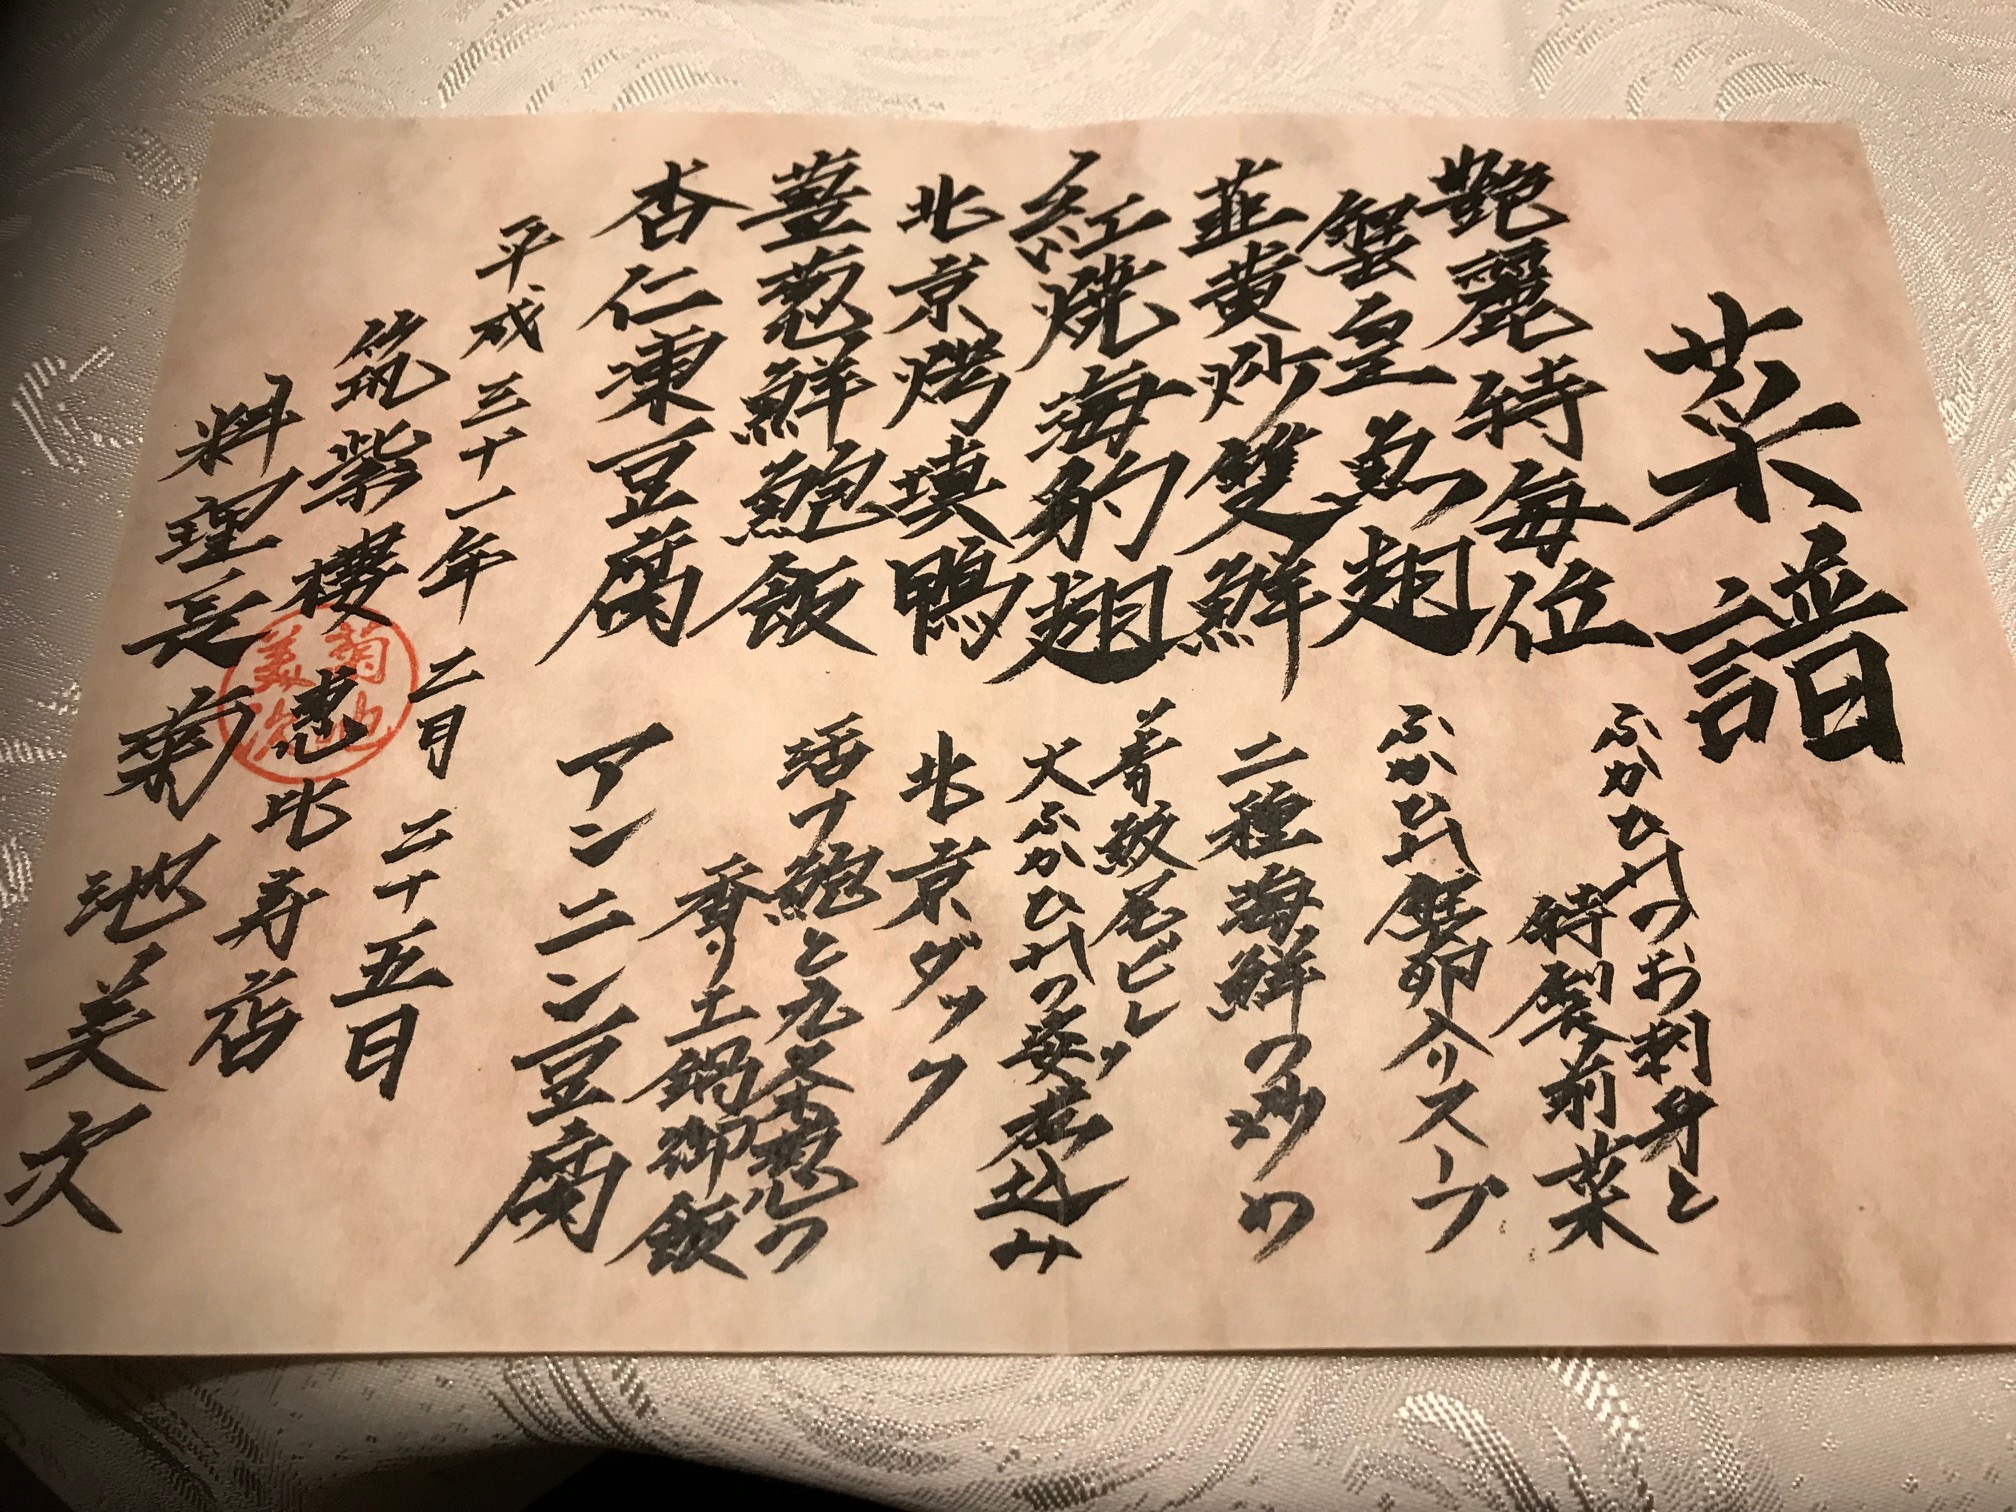 菜譜
艷麗特每位
ふかひれのお刺身と
特製前菜
蟹皇魚翅
ふかひれ蟹卵入りスープ
韮黄炒雙鮮
二種海鮮の炒め
紅燒海豹翅
青鮫尾ビレの
大ふかひれの姿煮込み
北京烤填鴨
北京ダック
薑葱鮮鮑飯
活ケ鮑と九条葱の
香り土鍋御飯
杏仁凍豆腐
アンニン豆腐
平成三十一年 二月 二十五日
筑紫樓 恵比寿店
料理長 菊池美次
菊池
美次